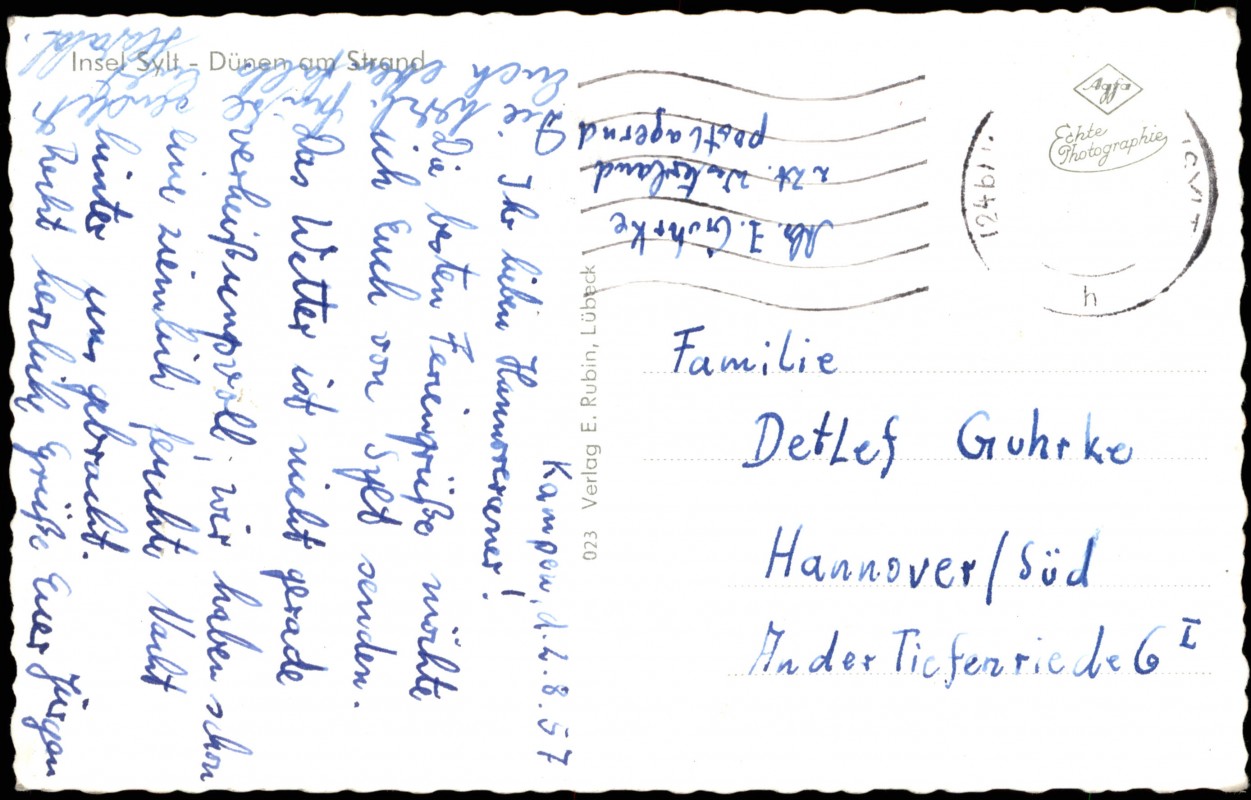 Insel Sylt – Dünen am Strand
Kampen, d. 2.8.57
Ihr lieben Hannoveraner!
Die besten Feriengrüße möchte
ich Euch von Sylt senden.
Das Wetter ist nicht gerade
verheißungsvoll, wir haben schon
eine ziemlich feuchte Nacht
hinter uns gebracht.
Recht herzliche Grüße Euer Jürgen
Harald.
Abs. J. Guhrke
z. Zt. Westerland
postlagernd
023 Verlag E. Rubin, Lübeck
Agfa
Echte
Photographie
h
Familie
Detlef Guhrke
Hannover/Süd
An der Tiefenriede 6 I